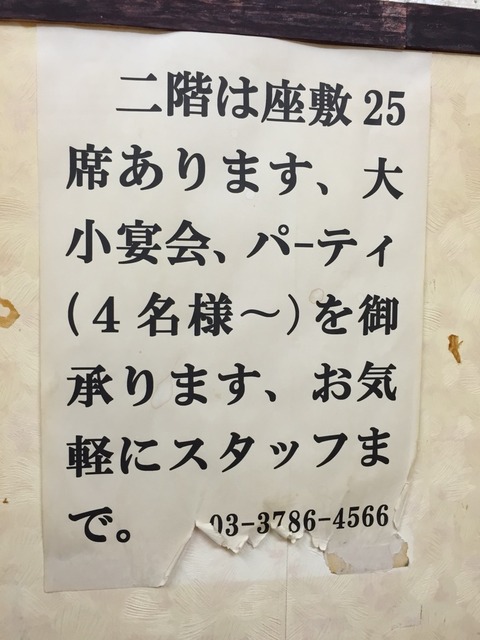 二階は座敷25
席あります、大
小宴会、パーティ
(4名様～)を御
承ります、お気
軽にスタッフま
で。 03-3786-4566